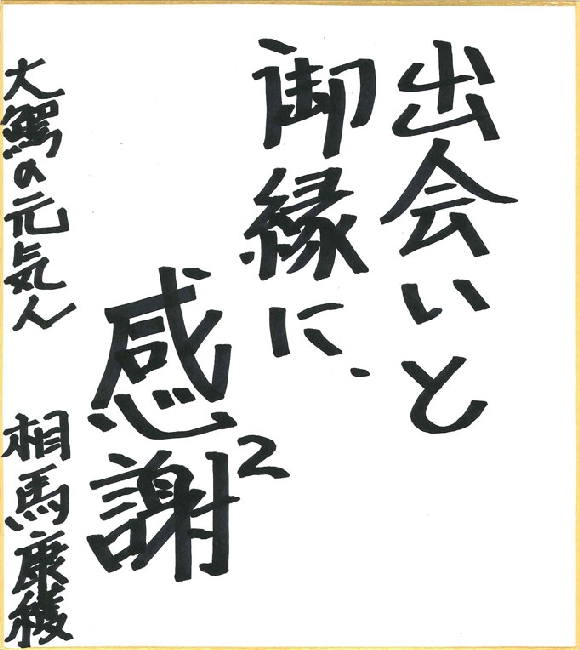 出会いと
御縁に、
感謝2
大鰐の元気ん
相馬康穫